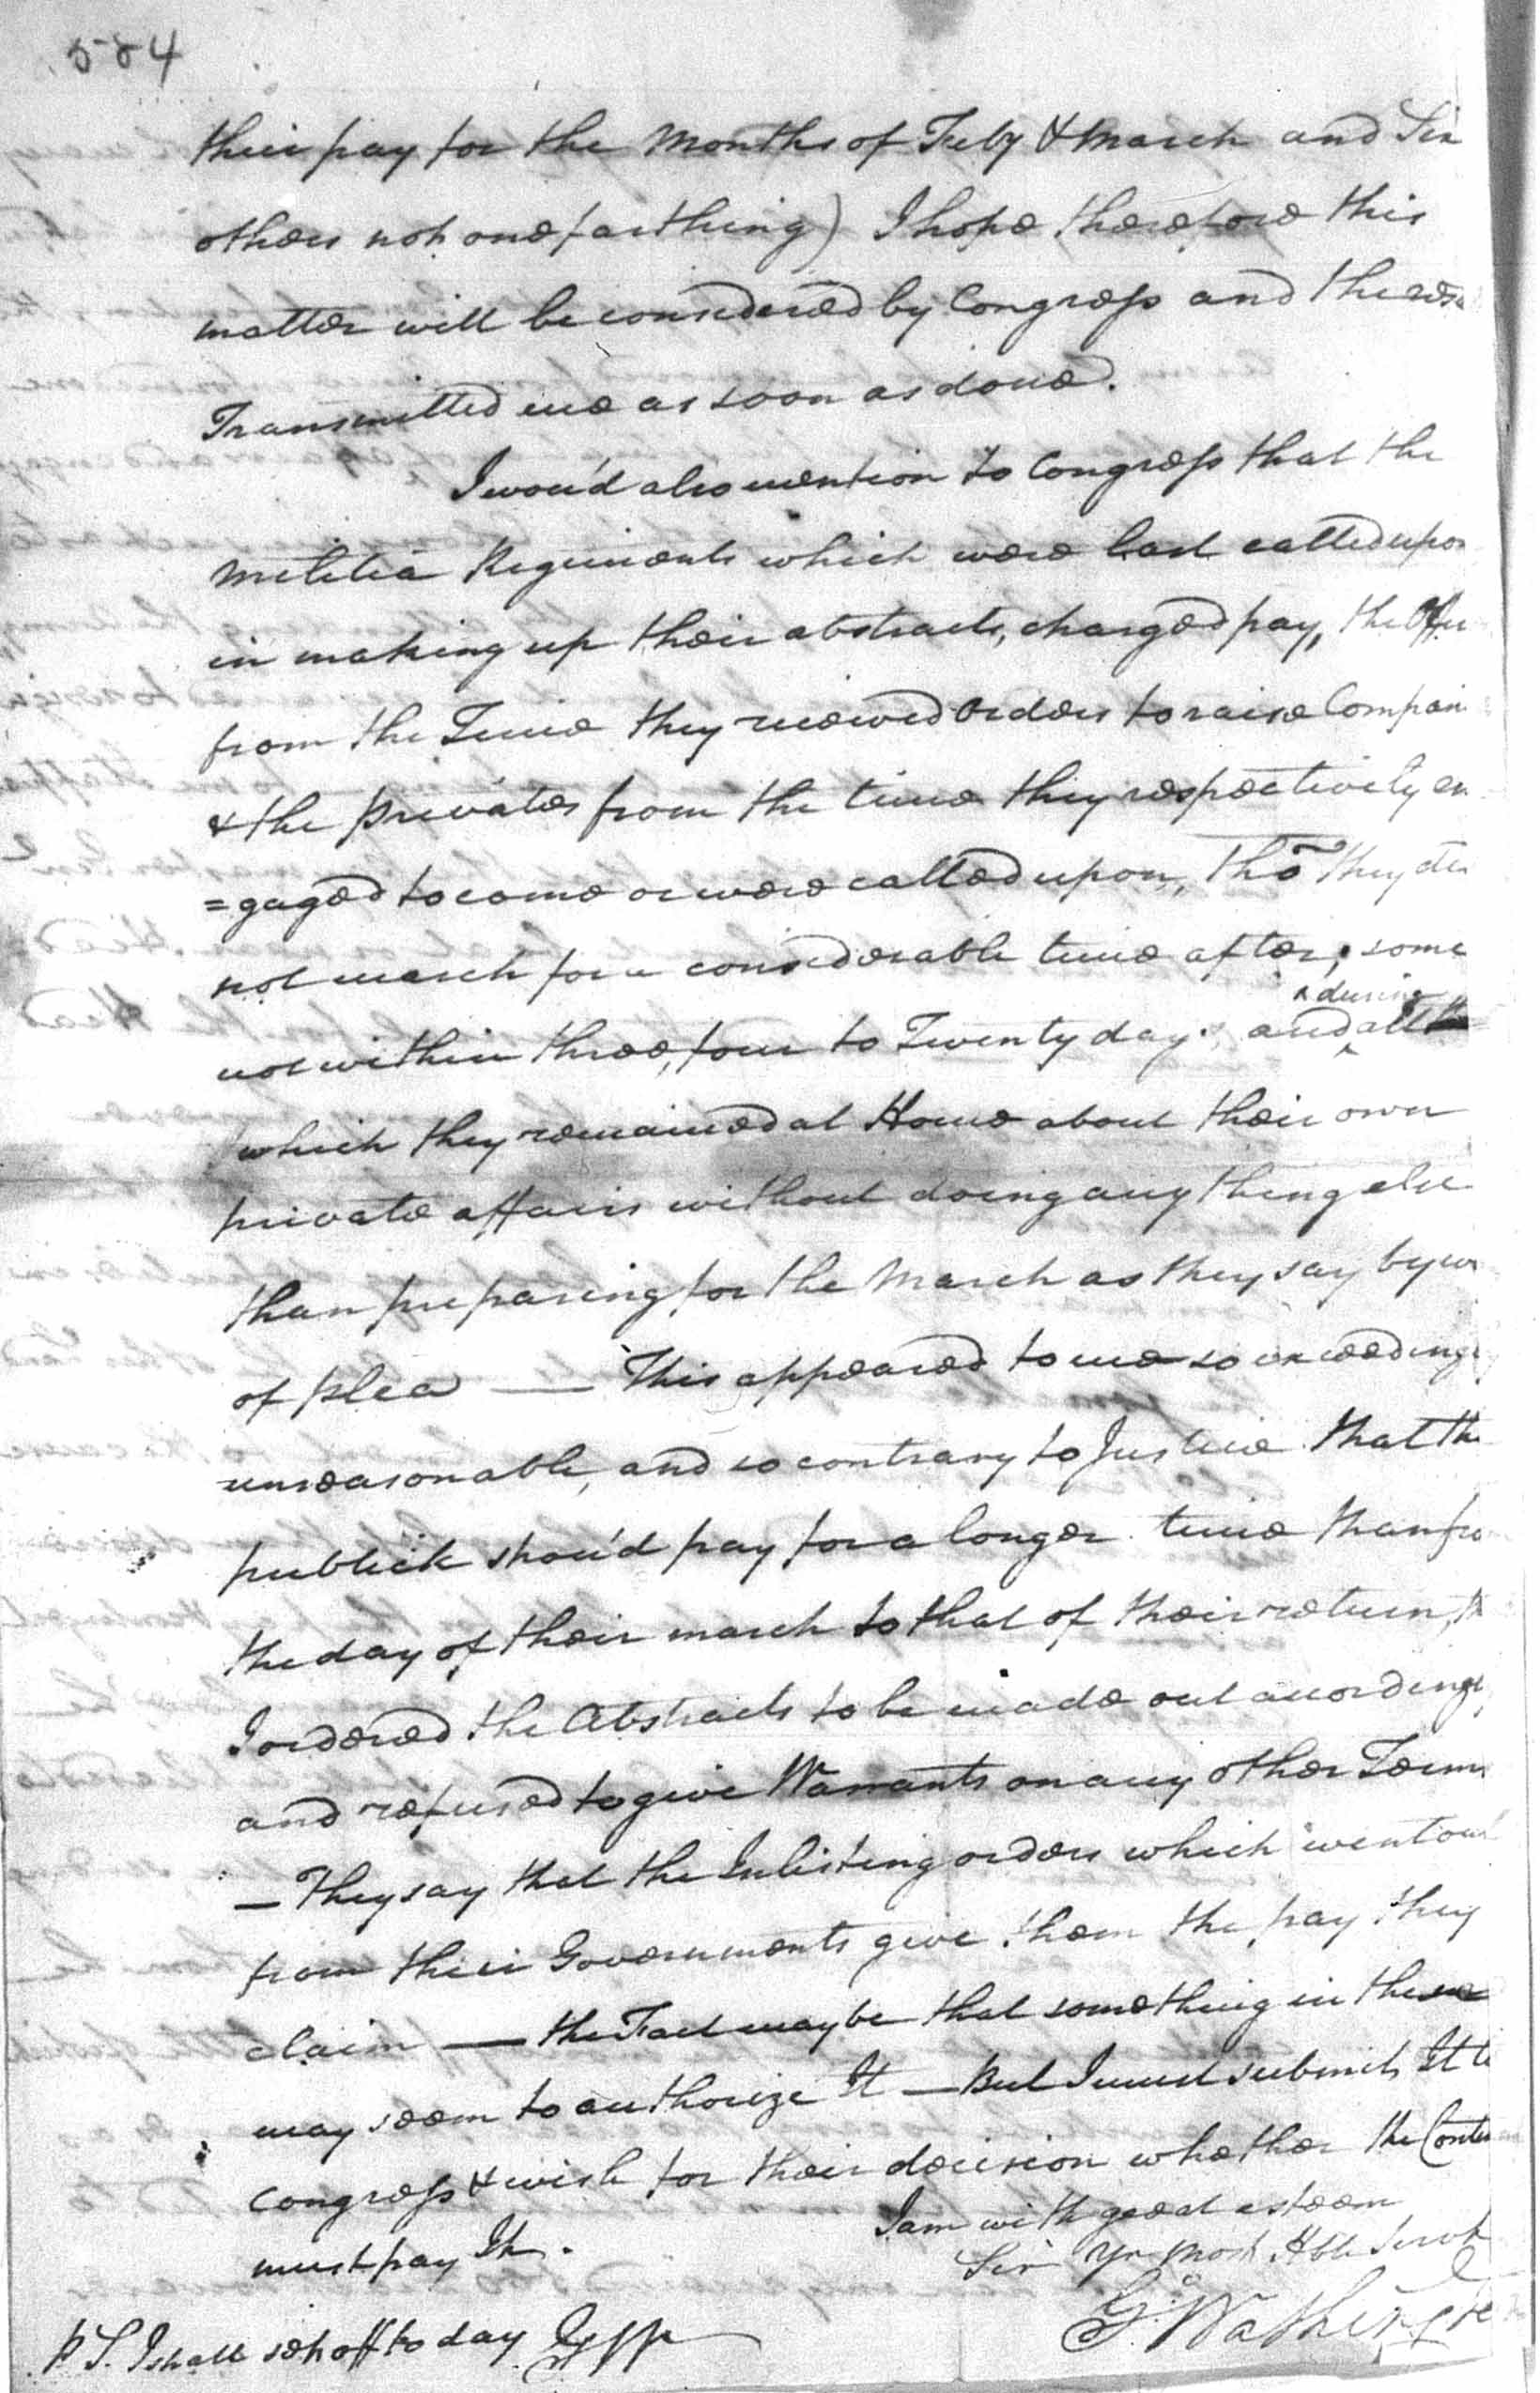 584
their pay for the Months of Feby & March and Six
others not one farthing) I hope therefore this
matter will be considered by Congress and the
Transmitted me as soon as done.
I wou'd also mention to Congress that the
Militia Regiments which were last called upon
in making up their abstracts, charged pay, the
from the Time they received Orders to raise Compan
& the privates from the time they respectively en
=gaged to come or were called upon, tho' they di
not march for a considerable time after; some
during
not within three, four to Twenty days, and all
which they remained at Home about their own
private affairs without doing any thing else
than preparing for the March as they say by
of plea — This appeared to me so exceeding
unreasonable, and so contrary to Justice that the
publick shou'd pay for a longer time than fro
the day of their march to that of their return, th
I ordered the Abstracts to be made out accordingly,
and refused to give Warrants on any other Terms
— They say that the Inlisting orders which went out
from their Governments give them the pay they
claim — the Fact may be that something in these
may seem to authorize It — But I must submit It to
Congress & wish for their decision whether the Contin
must pay It.
I am with great esteem
Sir Yr Most H'ble Servt
Go: Washington
P.S. I shall set off to day